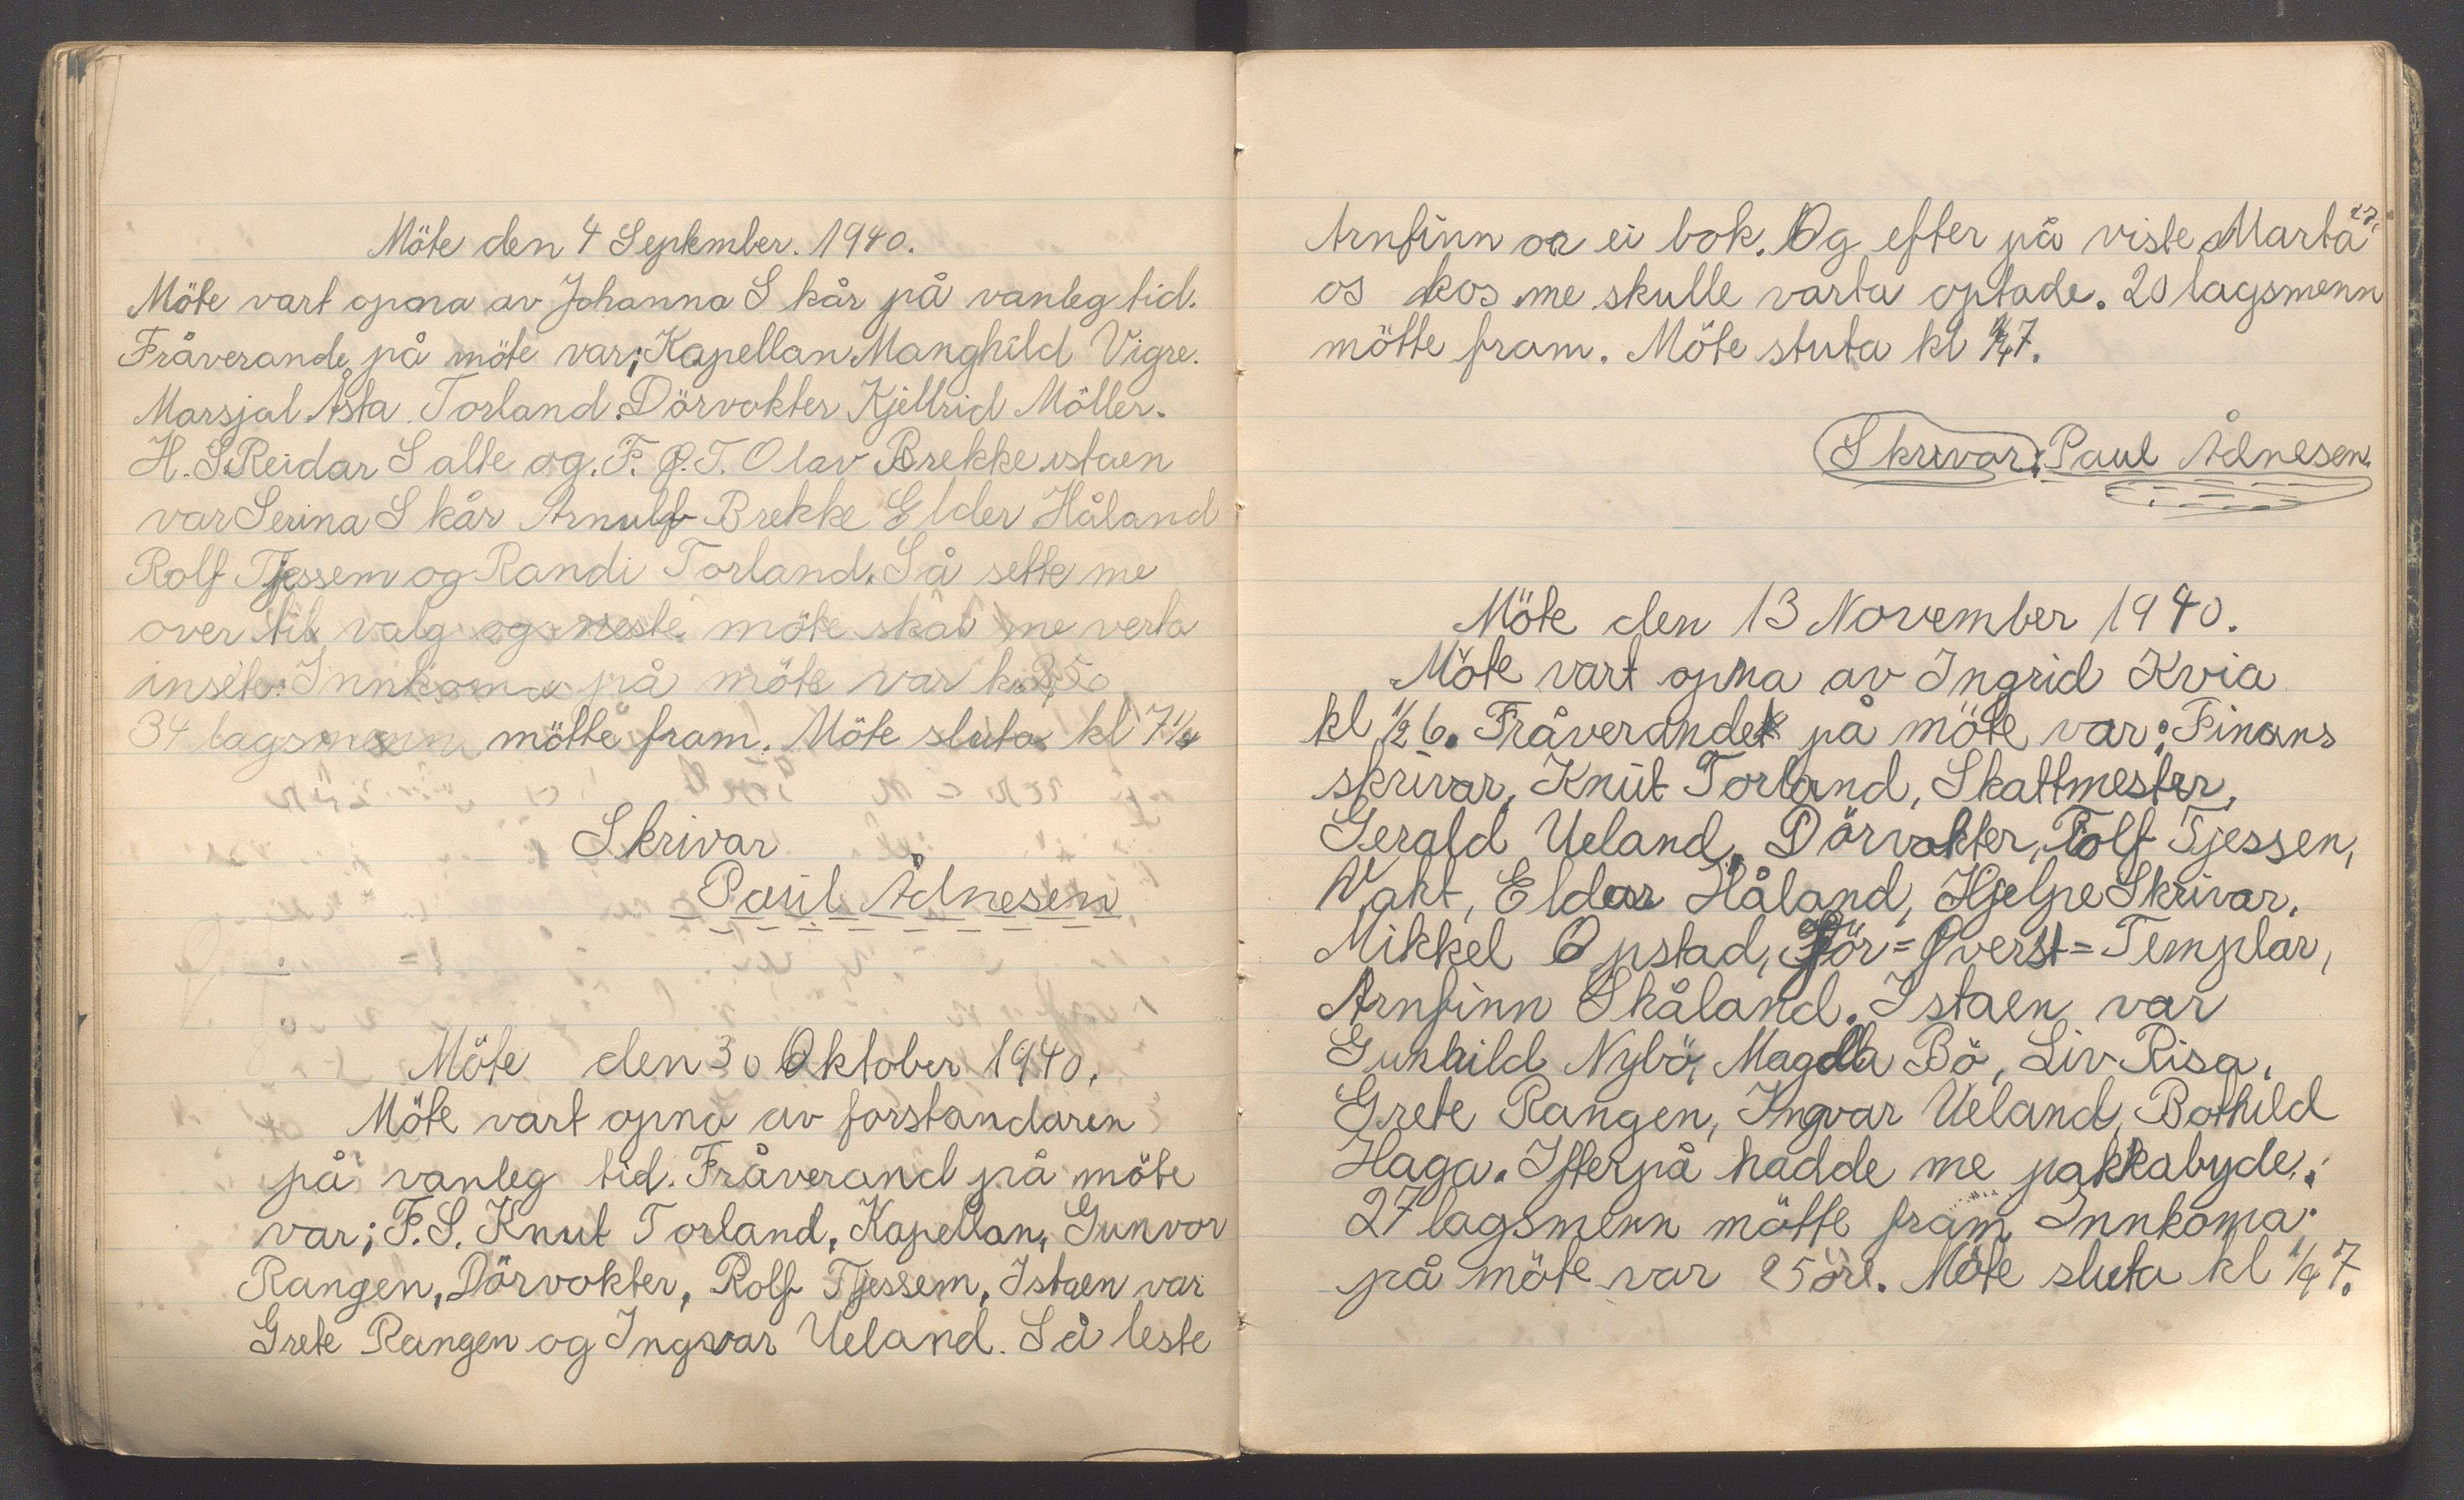 Möte den 4 September. 1940.
Möte vart opna av Johanna Skår på vanleg tid.
Fråverande på möte var; Kapellan Manghild Vigre.
Marsjal Åsta Torland. Dörvokter Kjellrid Möller.
H. S. Reidar Salte og. F. Ø. T. Olav Brekke istaen
var Serina Skår Arnulf Brekke Elder Håland
Rolf Tjessem og Randi Torland. Så sette me
over til valg og neste möte skal me verta
insete. Innkoma på möte var kr
34 lagsmenn mötte fram. Möte sluta kl 7 1/4
Skrivar
Paul Ådnesen
Möte den 30 Oktober 1940.
Möte vart opna av forstandaren
på vanleg tid. Fråverand på möte
var; F. S. Knut Torland, Kapellan, Gunvor
Rangen, Dörvokter, Rolf Tjessem, Istaen var
Grete Rangen og Ingvar Ueland. Så leste
27.
Arnfinn or ei bok. Og efter på viste Marta
os kos me skulle varta optade. 20 lagsmenn
mötte fram. Möte stuta kl 1/4 7.
Skrivar; Paul Ådnesen
Möte den 13 November 1940.
Möte vart opna av Ingrid Kvia
kl 1/2 6. Fråverande på möte var; Finans
skrivar, Knut Torland, Skattmester,
Gerald Ueland, Dörvakter, Rolf Tjessen,
Vakt, Eldar Håland, Hjelpe Skrivar,
Mikkel Opstad, För=Øverst=Templar,
Arnfinn Skåland. Istaen var
Gunhild Nybö, Magda Bö, Liv Risa,
Grete Rangen, Ingvar Ueland, Bothild
Haga. Ifterpå hadde me pakkabyde.
27 lagsmenn mötte fram Innkoma
på möte var 25 öre. Möte sluta kl 1/4 7.